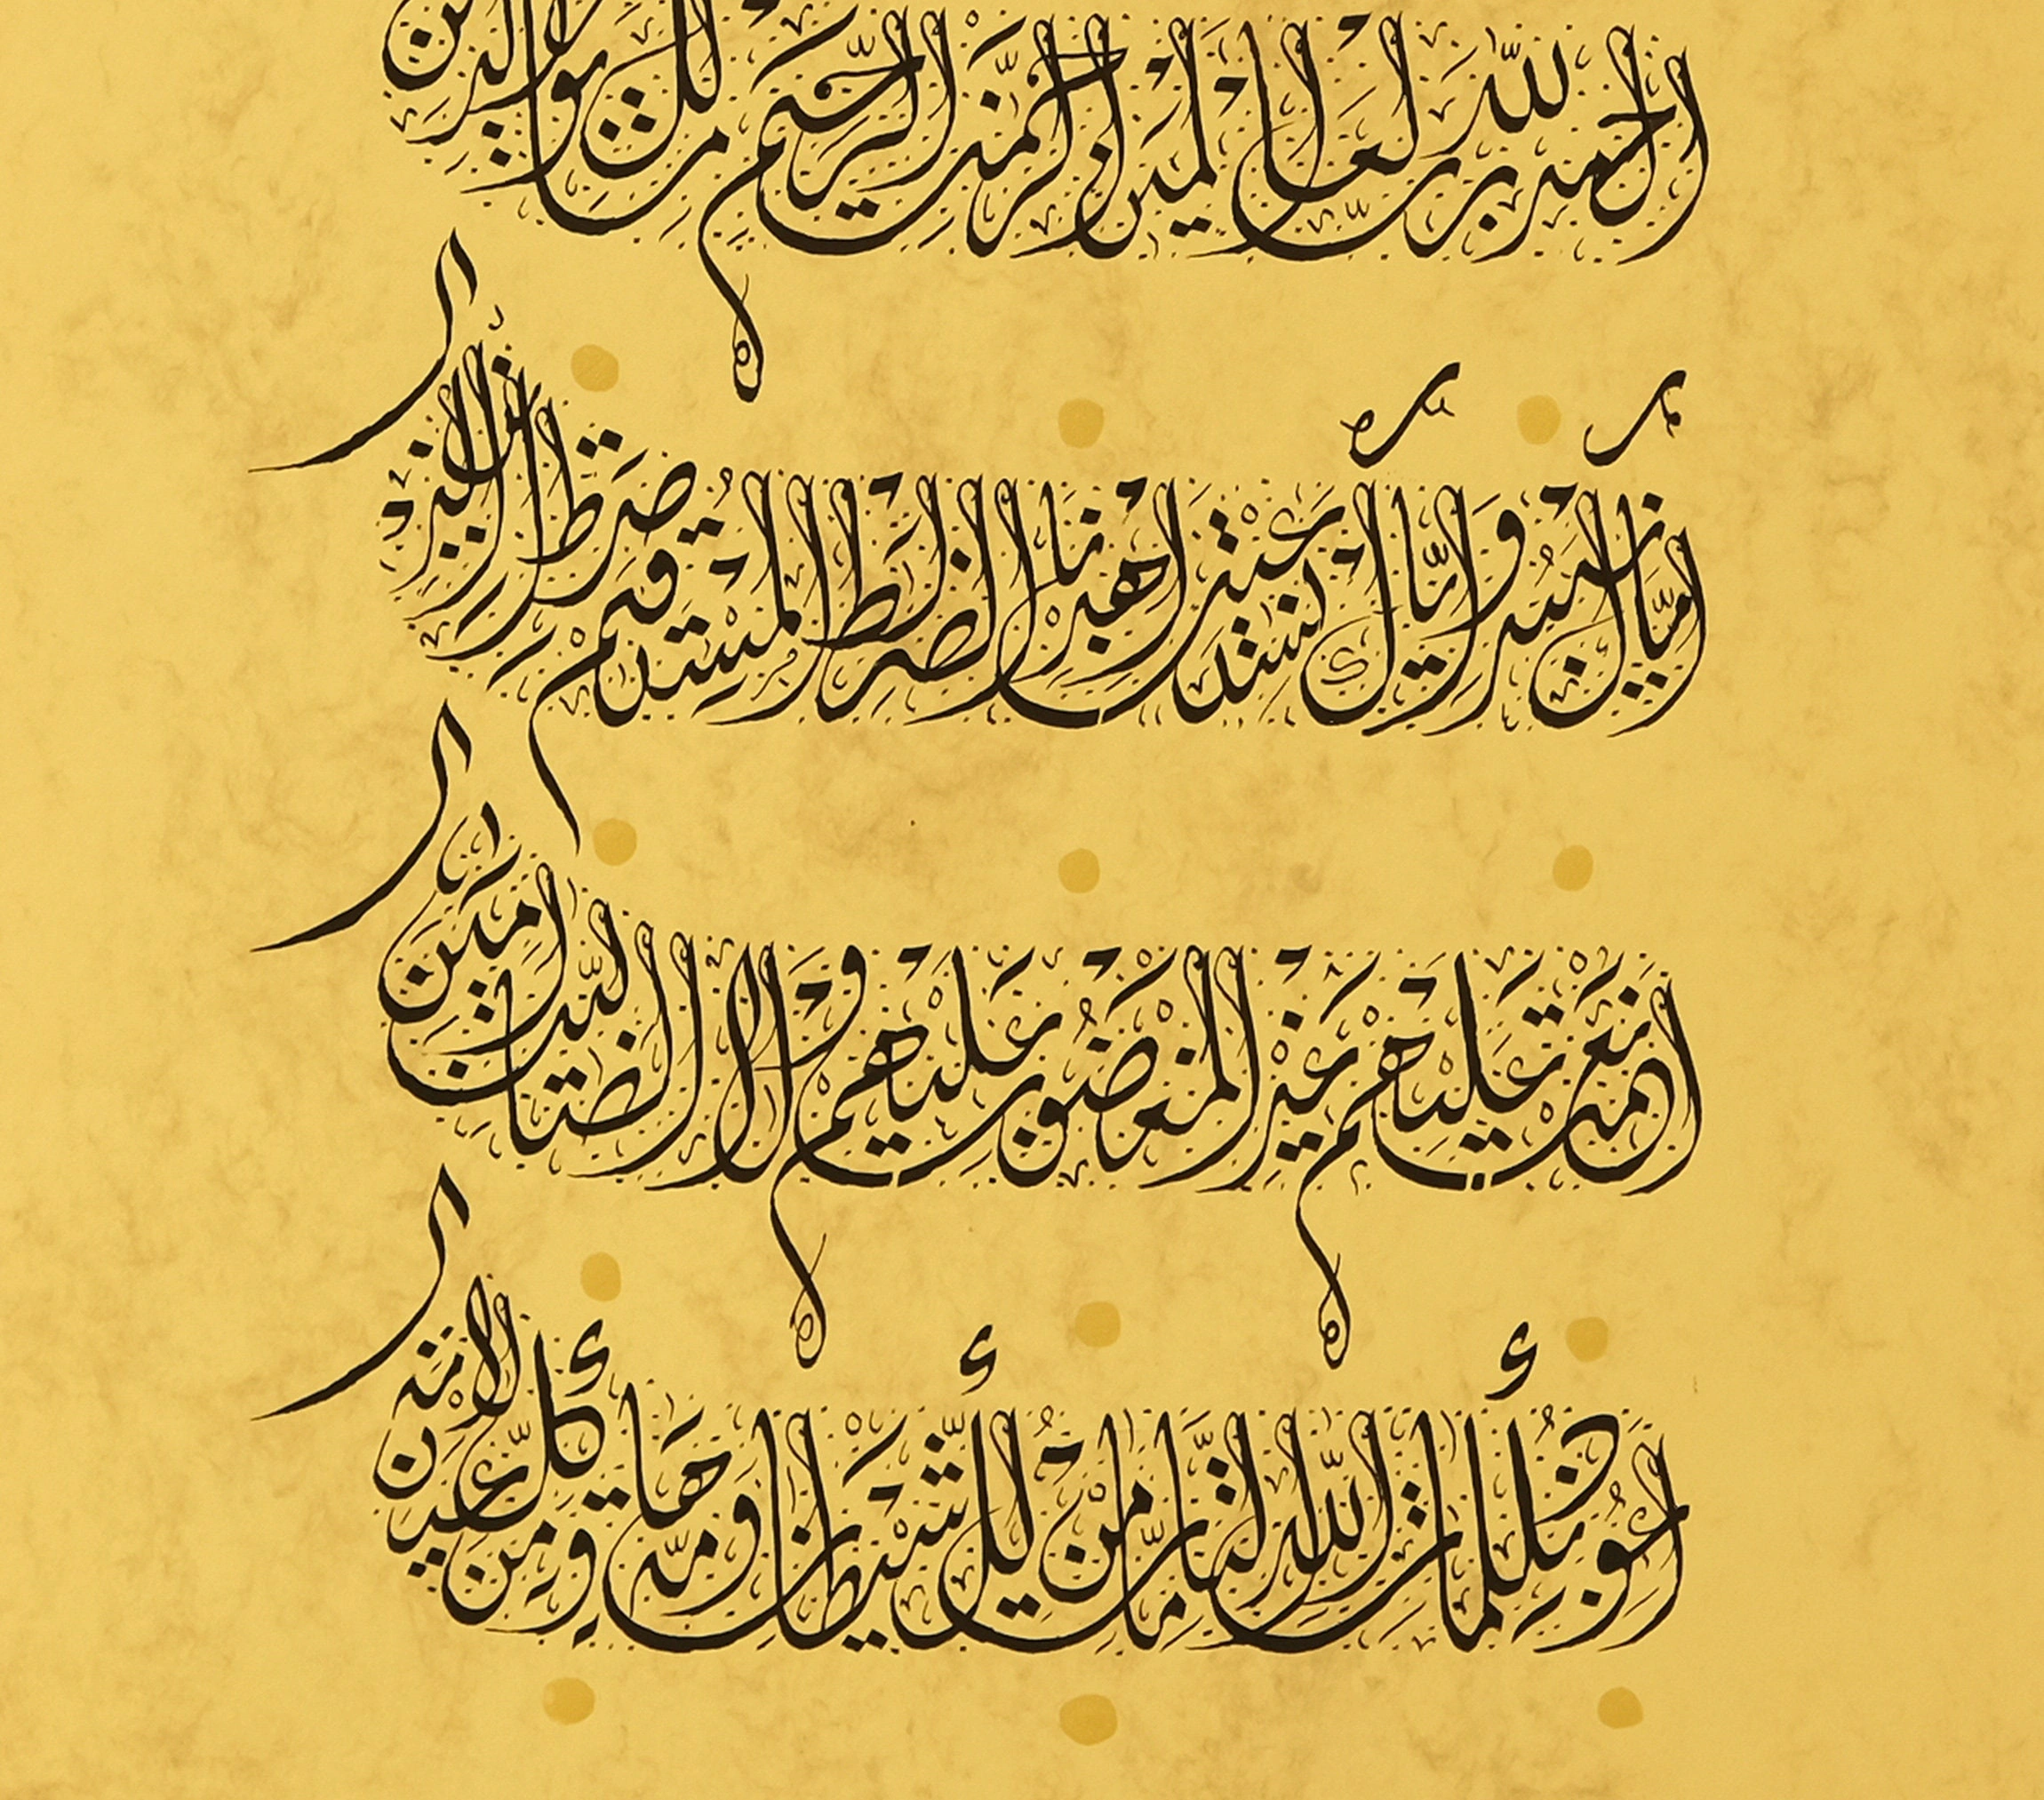 الحمد لله رب العالمين الرحمن الرحيم ملك يوم الدين
إياك نعبد وإياك نستعين اهدنا الصراط المستقيم صراط الذين
أنعمت عليهم غير المغضوب عليهم ولا الضالين آمين
أعوذ بكلمات الله التامة من كل شيطان وهامة ومن كل عين لامة